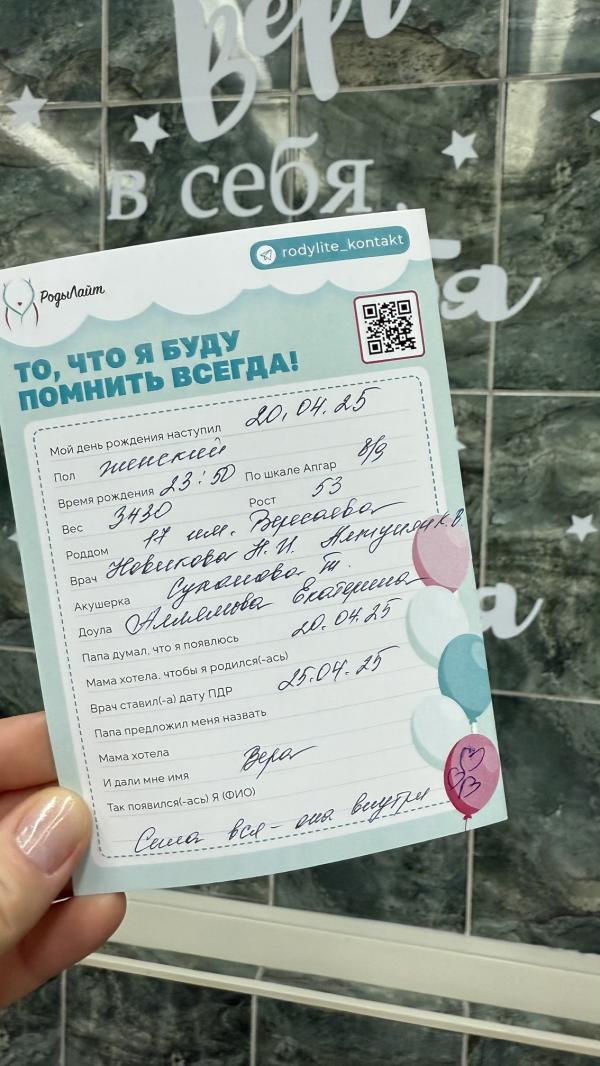 Вер
в себя,
rodylite_kontakt
РодыЛайт
ТО, ЧТО Я БУДУ
ПОМНИТЬ ВСЕГДА!
Мой день рождения наступил 20.04.25
Пол женский
Время рождения 23:50 По шкале Апгар 8/9
Вес 3430 Рост 53
Роддом 17 им. Вересаева
Врач Новикова Н. И.
Акушерка Суханова Т.
Доула Екатерина
Папа думал, что я появлюсь 20.04.25
Мама хотела, чтобы я родился(-ась)
Врач ставил(-а) дату ПДР 25.04.25
Папа предложил меня назвать
Мама хотела
И дали мне имя Вера
Так появился(-ась) Я (ФИО)
Сила вся - она внутри